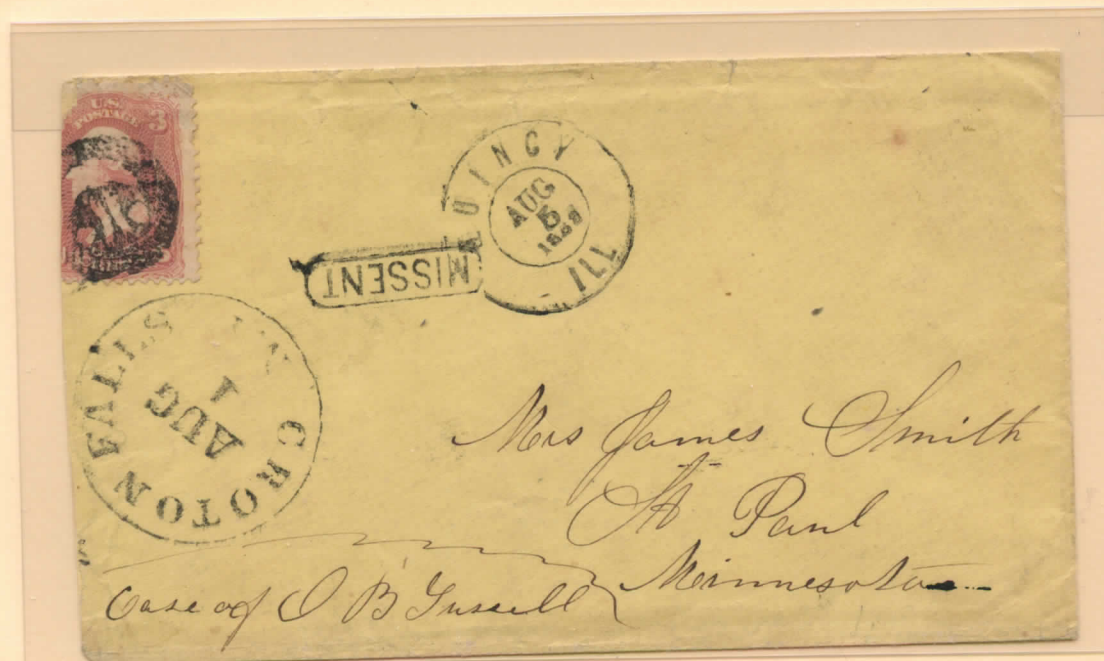 U.S.
POSTAGE 3
QUINCY
AUG
5
ILL
MISSENT
CROTON FALLS
AUG
1
Mrs James Smith
St Paul
Minnesota
Care of O B